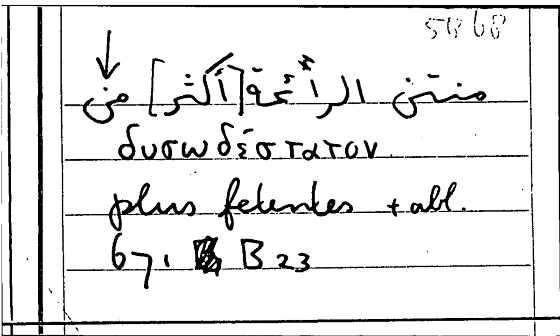 5868
منتن الرائحة [أكثر] من
δυσωδέστατον
plus fetentes + abl.
671. B 23